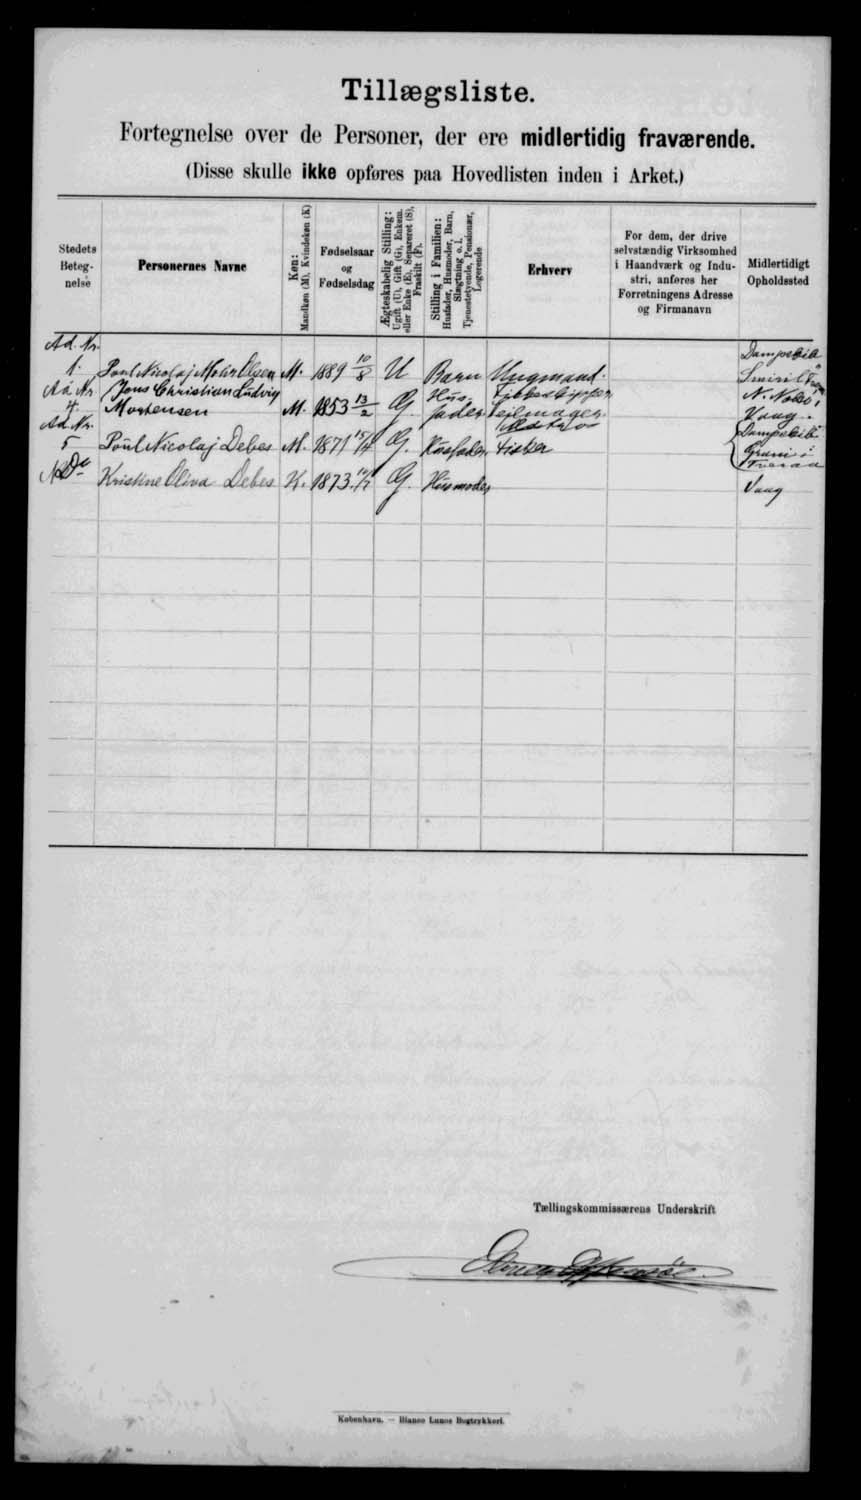 Tillægsliste.
Fortegnelse over de Personer, der ere midlertidig fraværende.
(Disse skulle ikke opføres paa Hovedlisten inden i Arket.)
Stedets Beteg-nelse
Personernes Navne
Køn:
Mandkøn (M), Kvindekøn (K)
Fødselsaar og Fødselsdag
Ægteskabelig Stilling:
Ugift (U), Gift (G), Enkem. eller Enke (E), Separeret (S), Fraskilt (F).
Stilling i Familien:
Husfader, Husmoder, Barn, Slægtning o. l. Tjenestetyende, Pensionær, Logerende
Erhverv
For dem, der drive
selvstændig Virksomhed
i Haandværk og Indu-
stri, anføres her
Forretningens Adresse
og Firmanavn
Midlertidigt
Opholdssted
Ad. Nr. 1. Poul Nicolaj Mohr Olsen M. 1889 10/8 U Barn Ungmand. Dampskib Smiril
Ad Nr. 4. Jens Christian Ludvig Mortensen M. 1853 13/2 G. Husfader Sejlmager Vaag.
Ad. Nr. 5 Poul Nicolaj Debes M. 1871 15/4 G. Husfader Fisker Dampskib
Do Kristine Oliva Debes K. 1873. G. Husmoder Vaag
Tællingskommissærens Underskrift
København. — Bianco Lunos Bogtrykkeri.